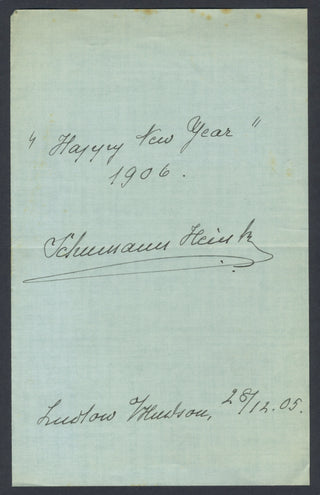 "Happy New Year"
1906.
Schumann Heink
Ludlow Hudson, 28/12.05.